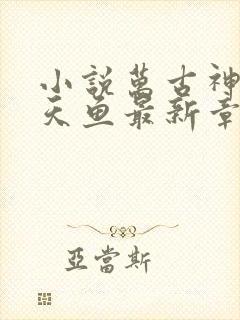 小說萬古神
天魚最新章
亞當斯